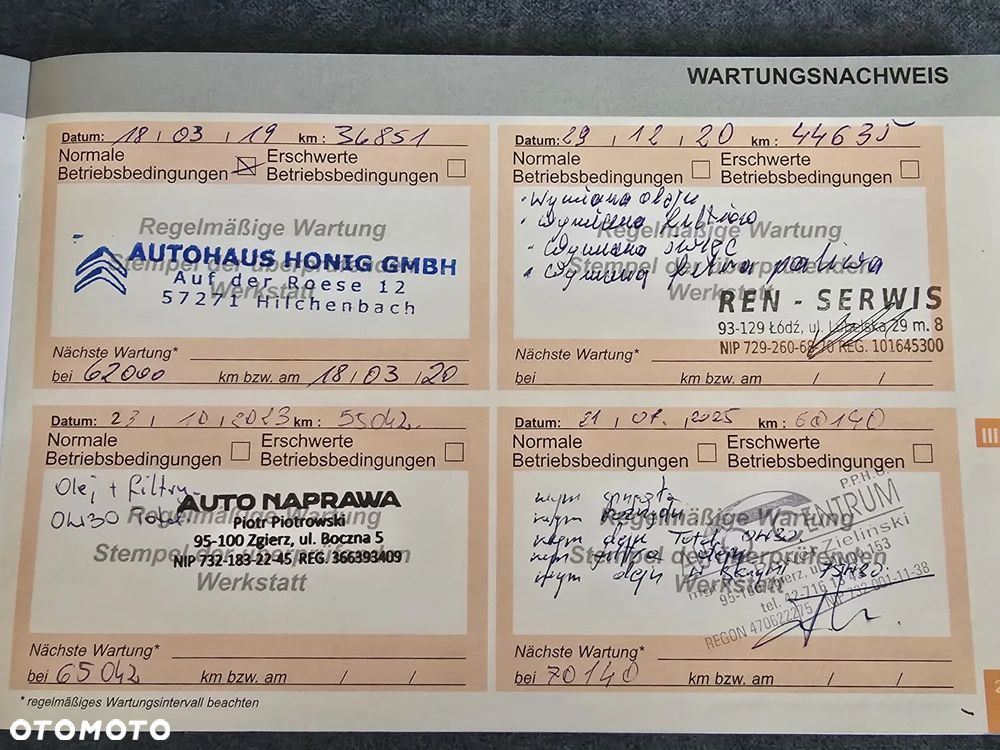 WARTUNGSNACHWEIS
Datum: 18 / 03 / 19 km: 36851
Normale Betriebsbedingungen
Erschwerte Betriebsbedingungen
Regelmäßige Wartung
AUTOHAUS HONIG GMBH
Stempel der überprüfenden
Auf der Roese 12
Werkstatt
57271 Hilchenbach
Nächste Wartung*
bei 62000 km bzw. am 18 / 03 / 20
Datum: 29 / 12 / 20 km: 44635
Normale Betriebsbedingungen
Erschwerte Betriebsbedingungen
• Wymiana oleju
• Wymiana filtrów
Regelmäßige Wartung
• Wymiana świec
• Wymiana filtra paliwa
Stempel der überprüfenden
Werkstatt
REN - SERWIS
93-129 Łódź, ul. 29 m. 8
NIP 729-260- REG. 101645300
Nächste Wartung*
bei km bzw. am / /
Datum: 23 / 10 / 2023 km: 55042
Normale Betriebsbedingungen
Erschwerte Betriebsbedingungen
Olej + Filtry
0W30 Total
AUTO NAPRAWA
Regelmäßige Wartung
Piotr Piotrowski
95-100 Zgierz, ul. Boczna 5
Stempel der überprüfenden
NIP 732-183-22-45, REG. 366393409
Werkstatt
Nächste Wartung*
bei 65042 km bzw. am / /
Datum: 21 / 07. / 2025 km: 60140
Normale Betriebsbedingungen
Erschwerte Betriebsbedingungen
wym
wym
Regelmäßige Wartung
wym oleju Total 0W30
Stempel der überprüfenden
wym filtra oleju
wym oleju
Werkstatt
P.P.H.U.
Zieliński
95-100 Zgierz, ul. 153
tel. 42-716
NIP 732-001-11-38
REGON 470622275
Nächste Wartung*
bei 70140 km bzw. am / /
* regelmäßiges Wartungsintervall beachten
III
2
OTOMOTO